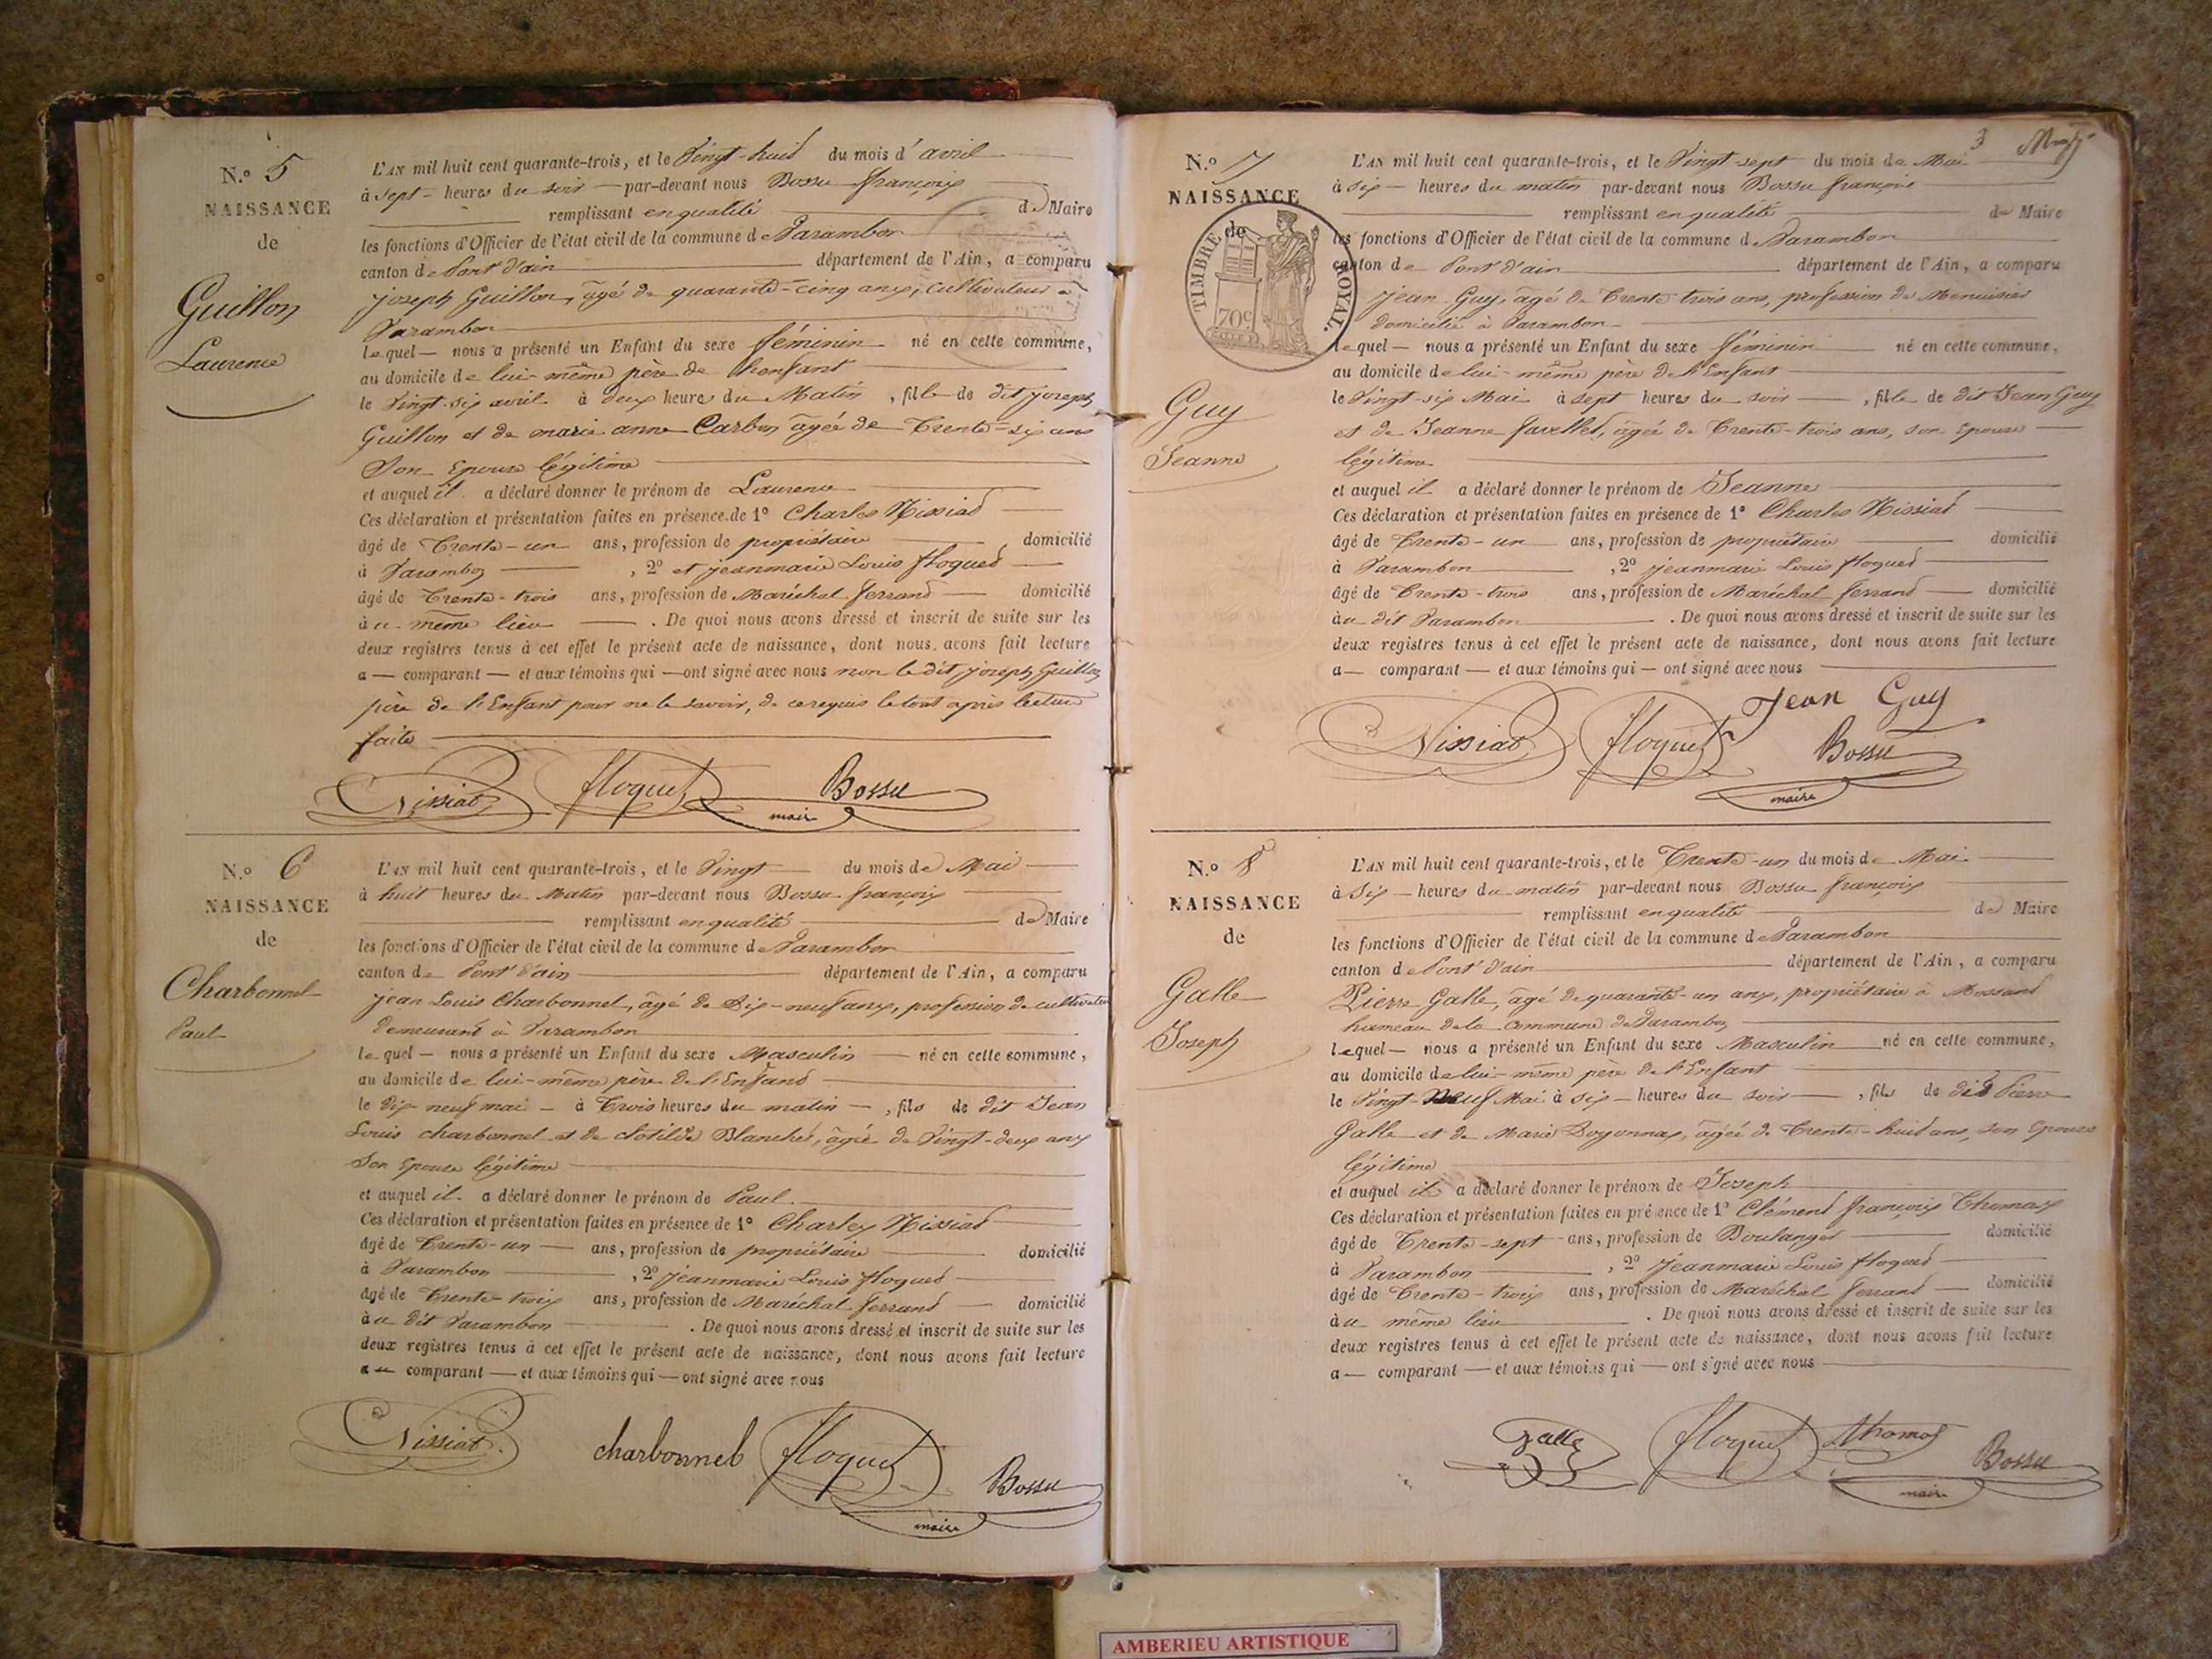 N.o 5
NAISSANCE
de
Guillon
Laurence
L'AN mil huit cent quarante-trois, et le Vingt-huit du mois d'avril
à sept heures du soir par-devant nous Bossu françois
remplissant en qualité de Maire
les fonctions d'Officier de l'état civil de la commune de Varambon
canton de Pont d'ain département de l'Ain, a comparu
joseph Guillon, âgé de quarante-cinq ans, cultivateur à
Varambon
lequel nous a présenté un Enfant du sexe féminin né en cette commune,
au domicile de lui-même père de l'enfant
le Vingt-six avril à deux heures du Matin, fille de dit joseph
Guillon et de marie anne Carbon âgée de Trente-six ans
Son Epouse légitime
et auquel il a déclaré donner le prénom de Laurence
Ces déclaration et présentation faites en présence de 1o Charles Nissiat
âgé de Trente-un ans, profession de propriétaire domicilié
à Varambon, 2o et jeanmarie Louis floquet
âgé de Trente-trois ans, profession de Maréchal ferrand domicilié
au même lieu. De quoi nous avons dressé et inscrit de suite sur les
deux registres tenus à cet effet le présent acte de naissance, dont nous avons fait lecture
a comparant et aux témoins qui ont signé avec nous non le dit joseph Guillon
père de l'Enfant pour ne le savoir, de ce requis le tout après lecture
faite
Nissiat floquet Bossu
maire
N.o 6
NAISSANCE
de
Charbonnel
Paul
L'AN mil huit cent quarante-trois, et le Vingt du mois de Mai
à huit heures du Matin par-devant nous Bossu françois
remplissant en qualité de Maire
les fonctions d'Officier de l'état civil de la commune de Varambon
canton de Pont d'ain département de l'Ain, a comparu
jean Louis Charbonnel, âgé de Dix-neuf ans, profession de cultivateur
demeurant à Varambon
lequel nous a présenté un Enfant du sexe Masculin né en cette commune,
au domicile de lui-même père de l'Enfant
le dix neuf mai à Trois heures du matin, fils de dit Jean
Louis charbonnel et de clotilde Blanchet, âgée de Vingt-deux ans
Son Epouse légitime
et auquel il a déclaré donner le prénom de Paul
Ces déclaration et présentation faites en présence de 1o Charles Nissiat
âgé de Trente-un ans, profession de propriétaire domicilié
à Varambon, 2o jeanmarie Louis floquet
âgé de Trente-trois ans, profession de Maréchal ferrand domicilié
au dit Varambon. De quoi nous avons dressé et inscrit de suite sur les
deux registres tenus à cet effet le présent acte de naissance, dont nous avons fait lecture
au comparant et aux témoins qui ont signé avec nous
Nissiat charbonnel floquet Bossu
maire
3
N.o 7
NAISSANCE
de
TIMBRE ROYAL.
70c
Guy
Jeanne
L'AN mil huit cent quarante-trois, et le Vingt-sept du mois de Mai
à six heures du matin par-devant nous Bossu françois
remplissant en qualité de Maire
les fonctions d'Officier de l'état civil de la commune de Varambon
canton de Pont d'ain département de l'Ain, a comparu
jean Guy, âgé de Trente-trois ans, profession de Menuisier
domicilié à Varambon
lequel nous a présenté un Enfant du sexe féminin né en cette commune,
au domicile de lui-même père de l'Enfant
le Vingt-six Mai à sept heures du soir, fille de dit Jean Guy
et de Jeanne favellet, âgée de Trente-trois ans, son Epouse
légitime
et auquel il a déclaré donner le prénom de Jeanne
Ces déclaration et présentation faites en présence de 1o Charles Nissiat
âgé de Trente-un ans, profession de propriétaire domicilié
à Varambon, 2o jeanmarie Louis floquet
âgé de Trente-trois ans, profession de Maréchal ferrand domicilié
au dit Varambon. De quoi nous avons dressé et inscrit de suite sur les
deux registres tenus à cet effet le présent acte de naissance, dont nous avons fait lecture
a comparant et aux témoins qui ont signé avec nous
Jean Guy
Nissiat floquet Bossu
maire
N.o 8
NAISSANCE
de
Galle
Joseph
L'AN mil huit cent quarante-trois, et le Trente-un du mois de Mai
à Six heures du matin par-devant nous Bossu françois
remplissant en qualité de Maire
les fonctions d'Officier de l'état civil de la commune de Varambon
canton de Pont d'ain département de l'Ain, a comparu
Pierre Galle, âgé de quarante-un ans, propriétaire à Mossand
hameau de la commune de Varambon
lequel nous a présenté un Enfant du sexe Masculin né en cette commune,
au domicile de lui-même père de l'Enfant
le Vingt-Neuf Mai à six heures du soir, fils de dit Pierre
Galle et de Marie Doyonnax, âgée de Trente-huit ans, son Epouse
légitime
et auquel il a déclaré donner le prénom de Joseph
Ces déclaration et présentation faites en présence de 1o Clément françois Thomas
âgé de Trente-sept ans, profession de Boulanger domicilié
à Varambon, 2o jeanmarie Louis floquet
âgé de Trente-trois ans, profession de Maréchal ferrand domicilié
au même lieu. De quoi nous avons dressé et inscrit de suite sur les
deux registres tenus à cet effet le présent acte de naissance, dont nous avons fait lecture
a comparant et aux témoins qui ont signé avec nous
Galle floquet thomas Bossu
maire
AMBERIEU ARTISTIQUE